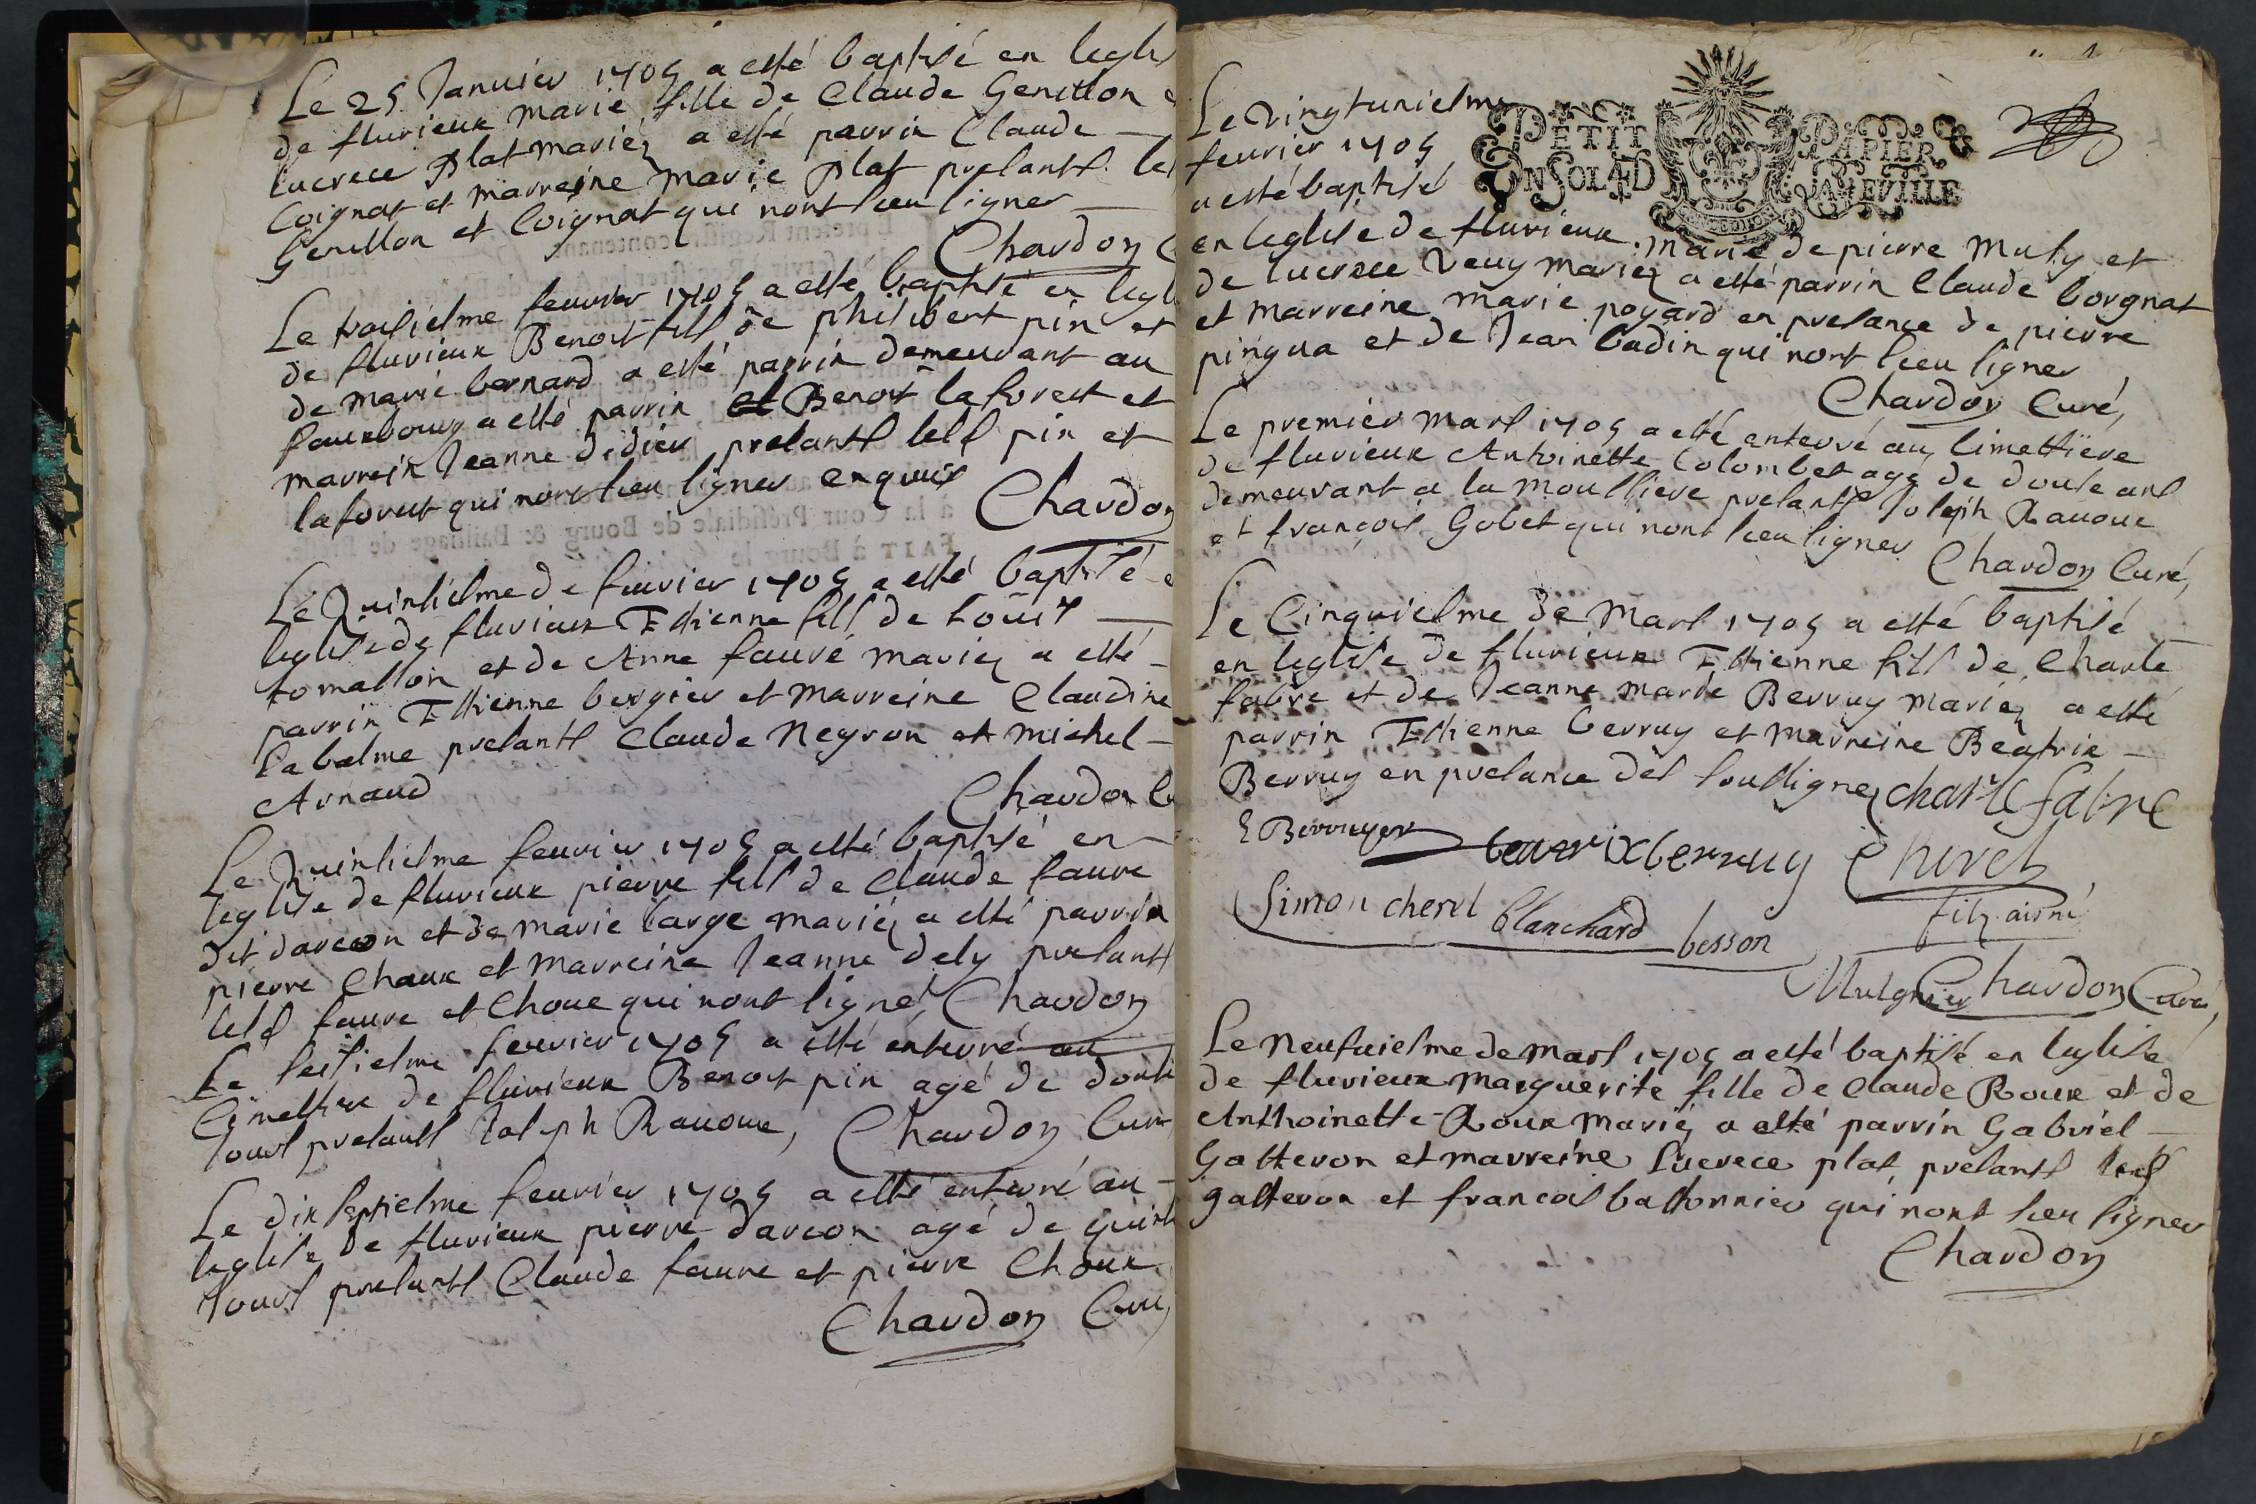 Le 25 Janvier 1705 a esté baptisé en leglis
de fluvieux marie fille de Claude Genillon e
lucrece Plat mariez a esté parrin Claude
Coignat et marreine marie Plat presants les
Genillon et Coignat qui nont sceu signer
Chardon C
Le troisiesme feuvrier 1705 a esté baptisé en legl
de fluvieux Benoit fils de philibert pin et
de marie bernard a esté parrin demeurant au
fauxbourg a esté parrin et Benoit laforest et
marrein Jeanne didier presants lesd pin et
laforest qui nont sceu signer enquis
Chardon
Le Quinsiesme de feuvrier 1705 a esté baptisé e
leglise de fluvieux Estienne fils de Louis
tomasson et de Anne fauré mariez a esté
parrin Estienne bergier et marreine Claudine
labalme presants Claude Neyron et michel
Arnaud
Chardon Cu
Le Quinsiesme feuvrier 1705 a esté baptisé en
leglise de fluvieux pierre fils de Claude faure
dit darcon et de marie large mariez a esté parrin
pierre Chaux et marreine Jeanne dely presants
lesd faure et Choux qui nont signé, Chardon
Le seisiesme feuvrier 1705 a esté enterré au
Cimestiere de fluvieux Benoit pin agé de douse
Jours presants Joseph Ravoux, Chardon Curé
Le dix septiesme feuvrier 1705 a esté enterré au
leglise de fluvieux pierre darcon agé de quinse
Jours presants Claude faure et pierre Choux
Chardon Curé
1
PETIT PAPIER
UN SOL 4D LA FEUILLE
Le vingtuniesme
feuvrier 1705
a esté baptisé
en leglise de fluvieux. marie de pierre Muly et
de lucrece Veuy mariez a esté parrin Claude Corgnat
et marreine marie poyard en presance de pierre
pingua et de Jean badin qui nont sceu signer
Chardon Curé,
Le premier mars 1705 a esté enterré au Cimestiere
de fluvieux Antoinette Colombet agé de douse ans
demeurant a la moussiere presants Joseph Ravoux
et françois Gobet qui nont sceu signer Chardon Curé,
Le Cinquiesme de mars 1705 a esté baptisé
en leglise de fluvieux Estienne fils de Charle
fabre et de Jeanne marie Berruy mariez a esté
parrin Estienne berruy et marreine Béatrix
Berruy en presance des soussignez charle fabre
E Berruyer beatrix berruy Cherel
Simon cherel blanchard besson filz aisné
Mulgnier Chardon Curé,
Le neufviesme de mars 1705 a esté baptisé en leglise
de fluvieux marguerite fille de Claude Roux et de
Anthoinette Roux mariez a esté parrin Gabriel
Gatteron et marreine Lucrece plat presants lesd
gatteron et francois bastonnier qui nont sceu signer
Chardon